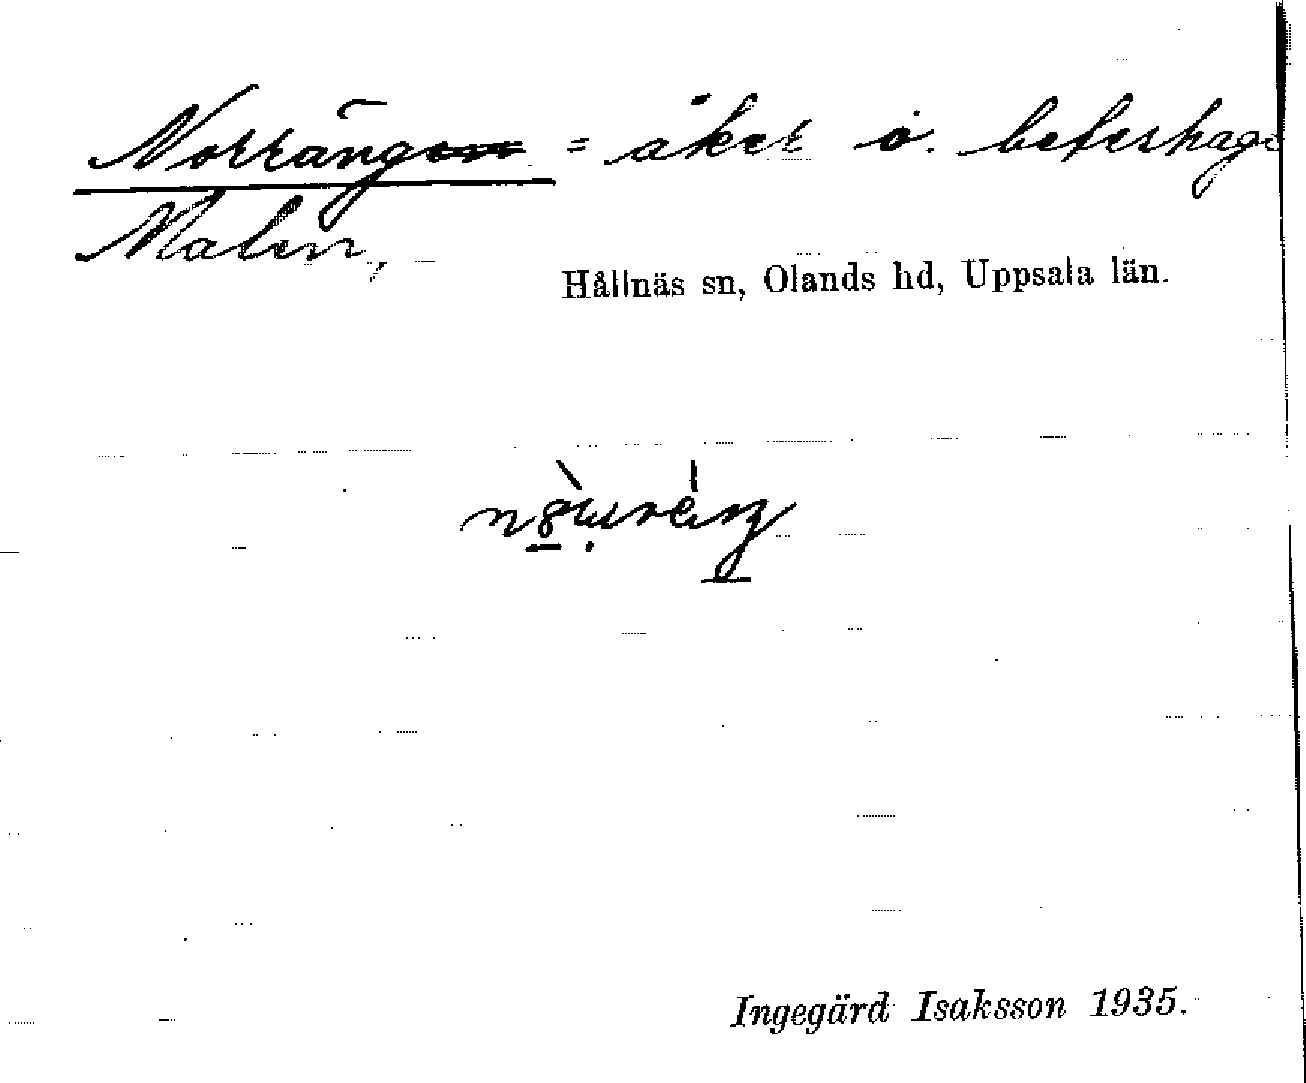 Norrängen = åker o. beteshage
Malen,
Hållnäs sn, Olands hd, Uppsala län.
Ingegärd Isaksson 1935.